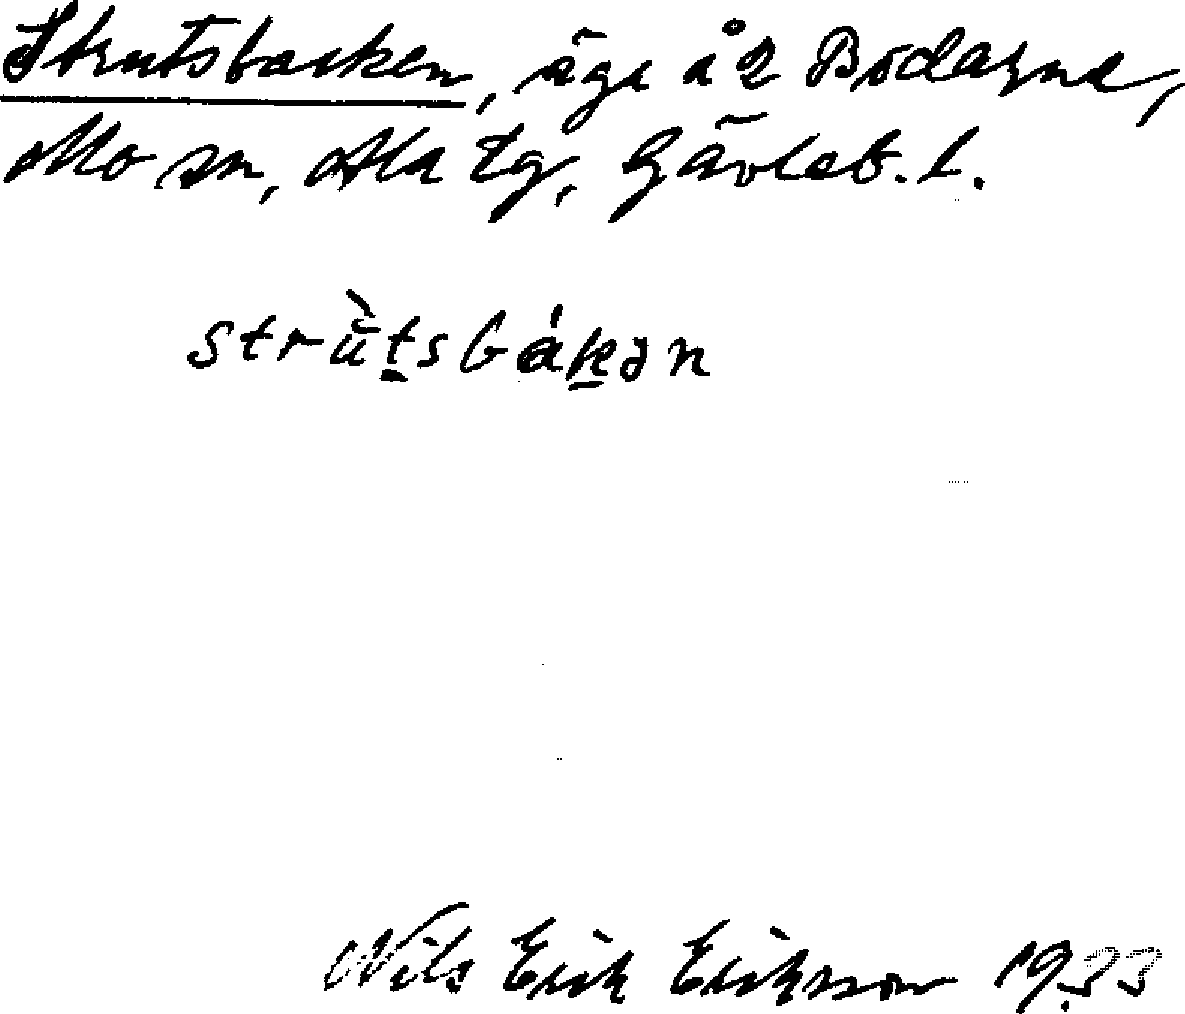 Strutsbacken, äga å 2 Bodarne,
Mo sn, Ala tg, Gävleb. l.
strùtsbákən
Nils Erik Eriksson 1933